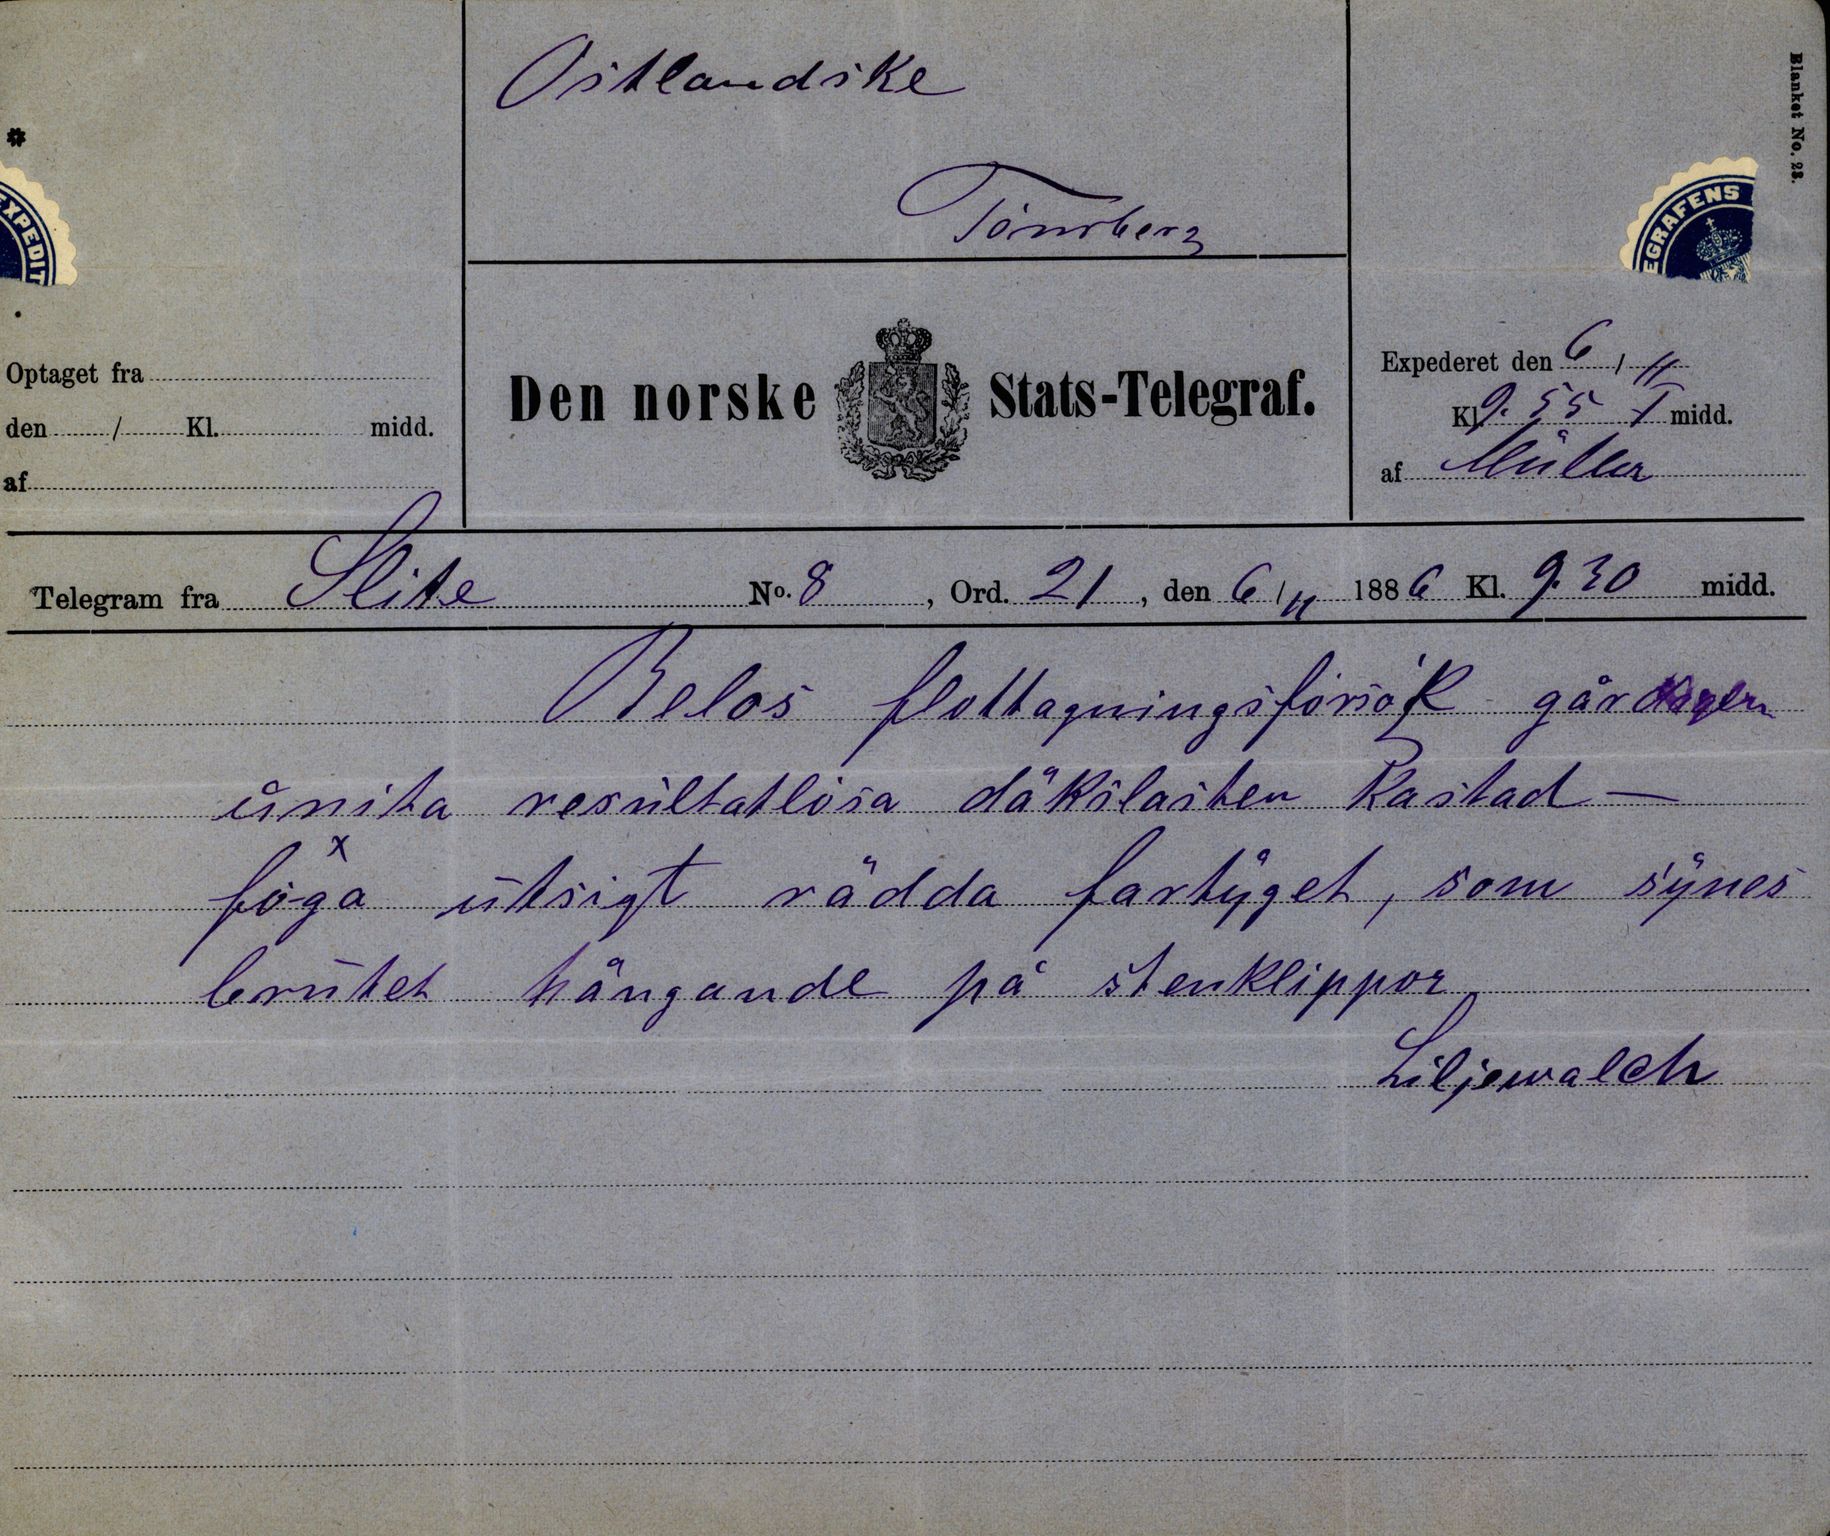 Blanket No. 23.
Ostlandske
Tönsberg
EXPEDIT
EGRAFENS
Optaget fra
den / Kl. midd.
af
Den norske Stats-Telegraf.
Expederet den 6 / 11
Kl 9.55 F midd.
af Müller
Telegram fra Slite No. 8, Ord. 21, den 6/11 1886 Kl. 9.30 midd.
Belos flottagningsförsök gårdagen
unita resultatlösa däkslasten kastad —
föga utsigt rädda fartyget, som synes
brutet hängande på stenklippor
Liljewalch